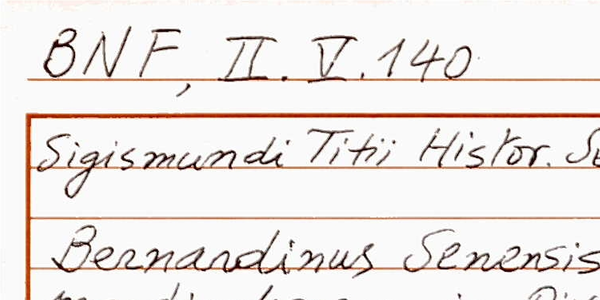 BNF, II. V. 140
Sigismundi Titii Histor.
Bernardinus Senensis